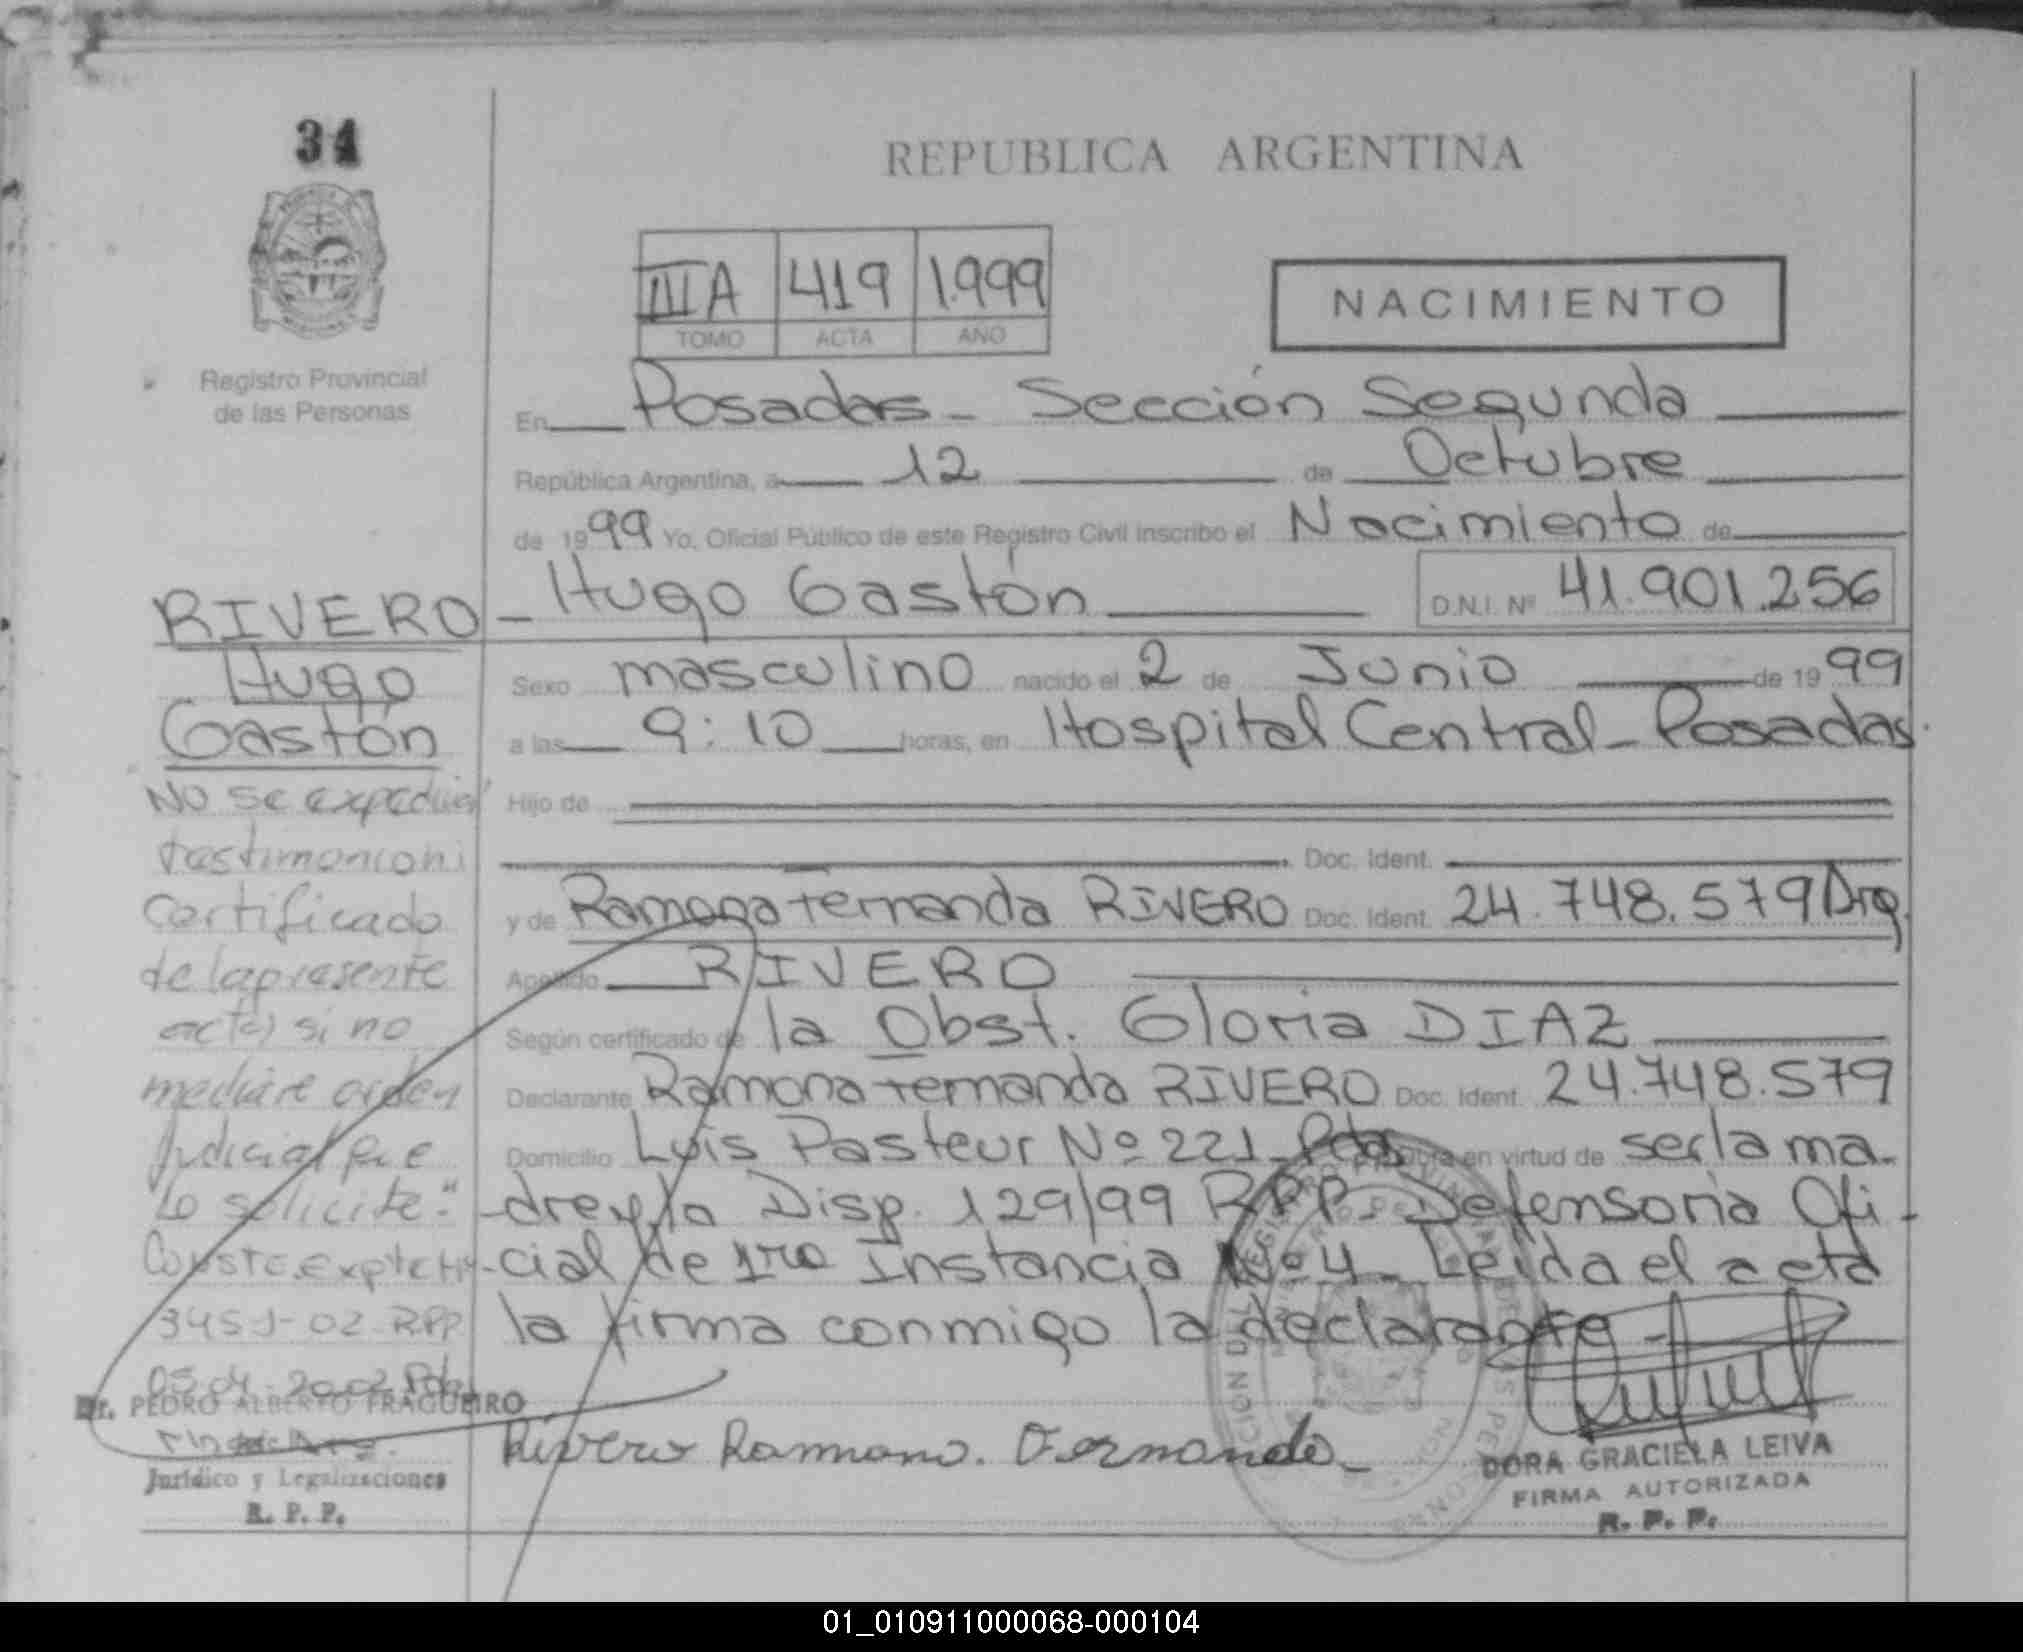 34
REPUBLICA ARGENTINA
III A 419 1.999
TOMO ACTA AÑO
NACIMIENTO
Registro Provincial
de las Personas
En Posadas - Sección Segunda
República Argentina, a 12 de Octubre
de 1999 Yo, Oficial Público de este Registro Civil inscribo el Nacimiento de
RIVERO - Hugo Gastón D.N.I. Nº 41.901.256
Hugo
Gastón
Sexo masculino nacido el 2 de Junio de 1999
a las 9:10 horas, en Hospital Central - Posadas.
Hijo de
Doc. Ident.
y de Ramona Fernanda RIVERO Doc. Ident. 24.748.579 Arg.
Apellido RIVERO
Según certificado de la Obst. Gloria DIAZ
Declarante Ramona Fernanda RIVERO Doc. Ident. 24.748.579
Domicilio Luis Pasteur Nº 221 - Pdas en virtud de ser la ma-
-dre y la Disp. 129/99 RPP - Defensoria Ofi-
-cial de 1ra Instancia Nº 4 - Leida el acta
la firma conmigo la declarante -
No se expedirá
testimonio ni
certificado
de la presente
acta) si no
mediante orden
judicial que
lo solicite."
Conste. Expte
3451-02 RPP
05-04-2002 Pdas
Dr. PEDRO ALBERTO FRAGUEIRO
Jurídico y Legalizaciones
R. P. P.
Rivero Ramona. Fernanda -
DORA GRACIELA LEIVA
FIRMA AUTORIZADA
R. P. P.
01_010911000068-000104